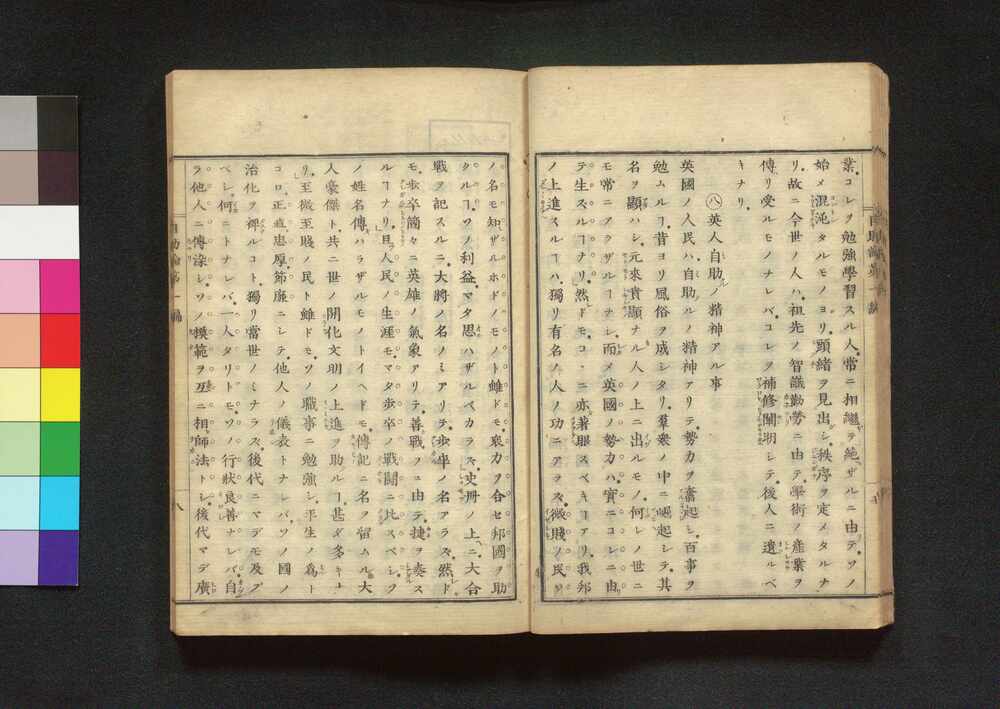 業。コレヲ勉強學習スル人。常ニ相繼テ絶ザルニ由テ。ソノ
始メ混沌タルモノヨリ。頭緒ヲ見出シ。秩序ヲ定メタルナ
リ。故ニ今世ノ人ハ。祖先ノ智識勤勞ニ由テ。學術ノ產業ヲ
傳リ受ルモノナレバ。コレヲ補修開明シテ。後人ニ遺ルベ
キナリ。
㊇英人自助ノ精神アル事
英國ノ人民ハ。自助ルノ精神アリテ。勢力ヲ奮起シ。百事ヲ
勉ムルヿ。昔ヨリ風俗ヲ成シタリ。羣衆ノ中ニ崛起シテ。其
名ヲ顯ハシ。元來貴顯ナル人ノ上ニ出ルモノ。何レノ世ニ
モ常ニアラザルヿナシ。而メ英國ノ勢力ハ。實ニコレニ由
テ生スルヿナリ。然ドモコヽニ亦著眼スベキヿアリ。我邦
ノ上進スルヿハ。獨リ有名ノ人ノ功ニアラズ。微賤ノ民ソ
ノ名モ知ザルホドノモノト雖ドモ。衆力ヲ合セ邦國ヲ助
クルヿ。ソノ利益マタ思ハザルベカラズ。史冊ノ上ニ。大合
戰ヲ記スルニ。大將ノ名ノミアリテ。歩卒ノ名アラズ。然ド
モ。歩卒箇々ニ英雄ノ氣象アリテ。善戰フニ由テ。捷ヲ奏ス
ルヿナリ。且人民ノ生涯モ。マタ歩卒ノ戰鬪ニ比スベシ。ソ
ノ姓名傳ハラザルモノトイヘドモ。傳記ニ名ヲ留ムル大
人豪傑ト。共ニ世ノ開化文明ノ上進ヲ助ルヿ。甚ダ多キヿ
リ。至微至賤ノ民ト雖ドモ。ソノ職事ニ勉強シ。平生ノ爲ト
コロ。正直忠厚節廉ニシテ。他人ノ儀表トナレバ。ソノ國ノ
治化ヲ裨ルコト。獨リ當世ノミナラズ。後代ニマデモ及ブ
ベシ。何ニトナレバ。一人タリトモ。ソノ行狀良善ナレバ。自
ラ他人ニ傳染シ。ソノ模範ヲ互ニ相師法トシ。後代マデ廣